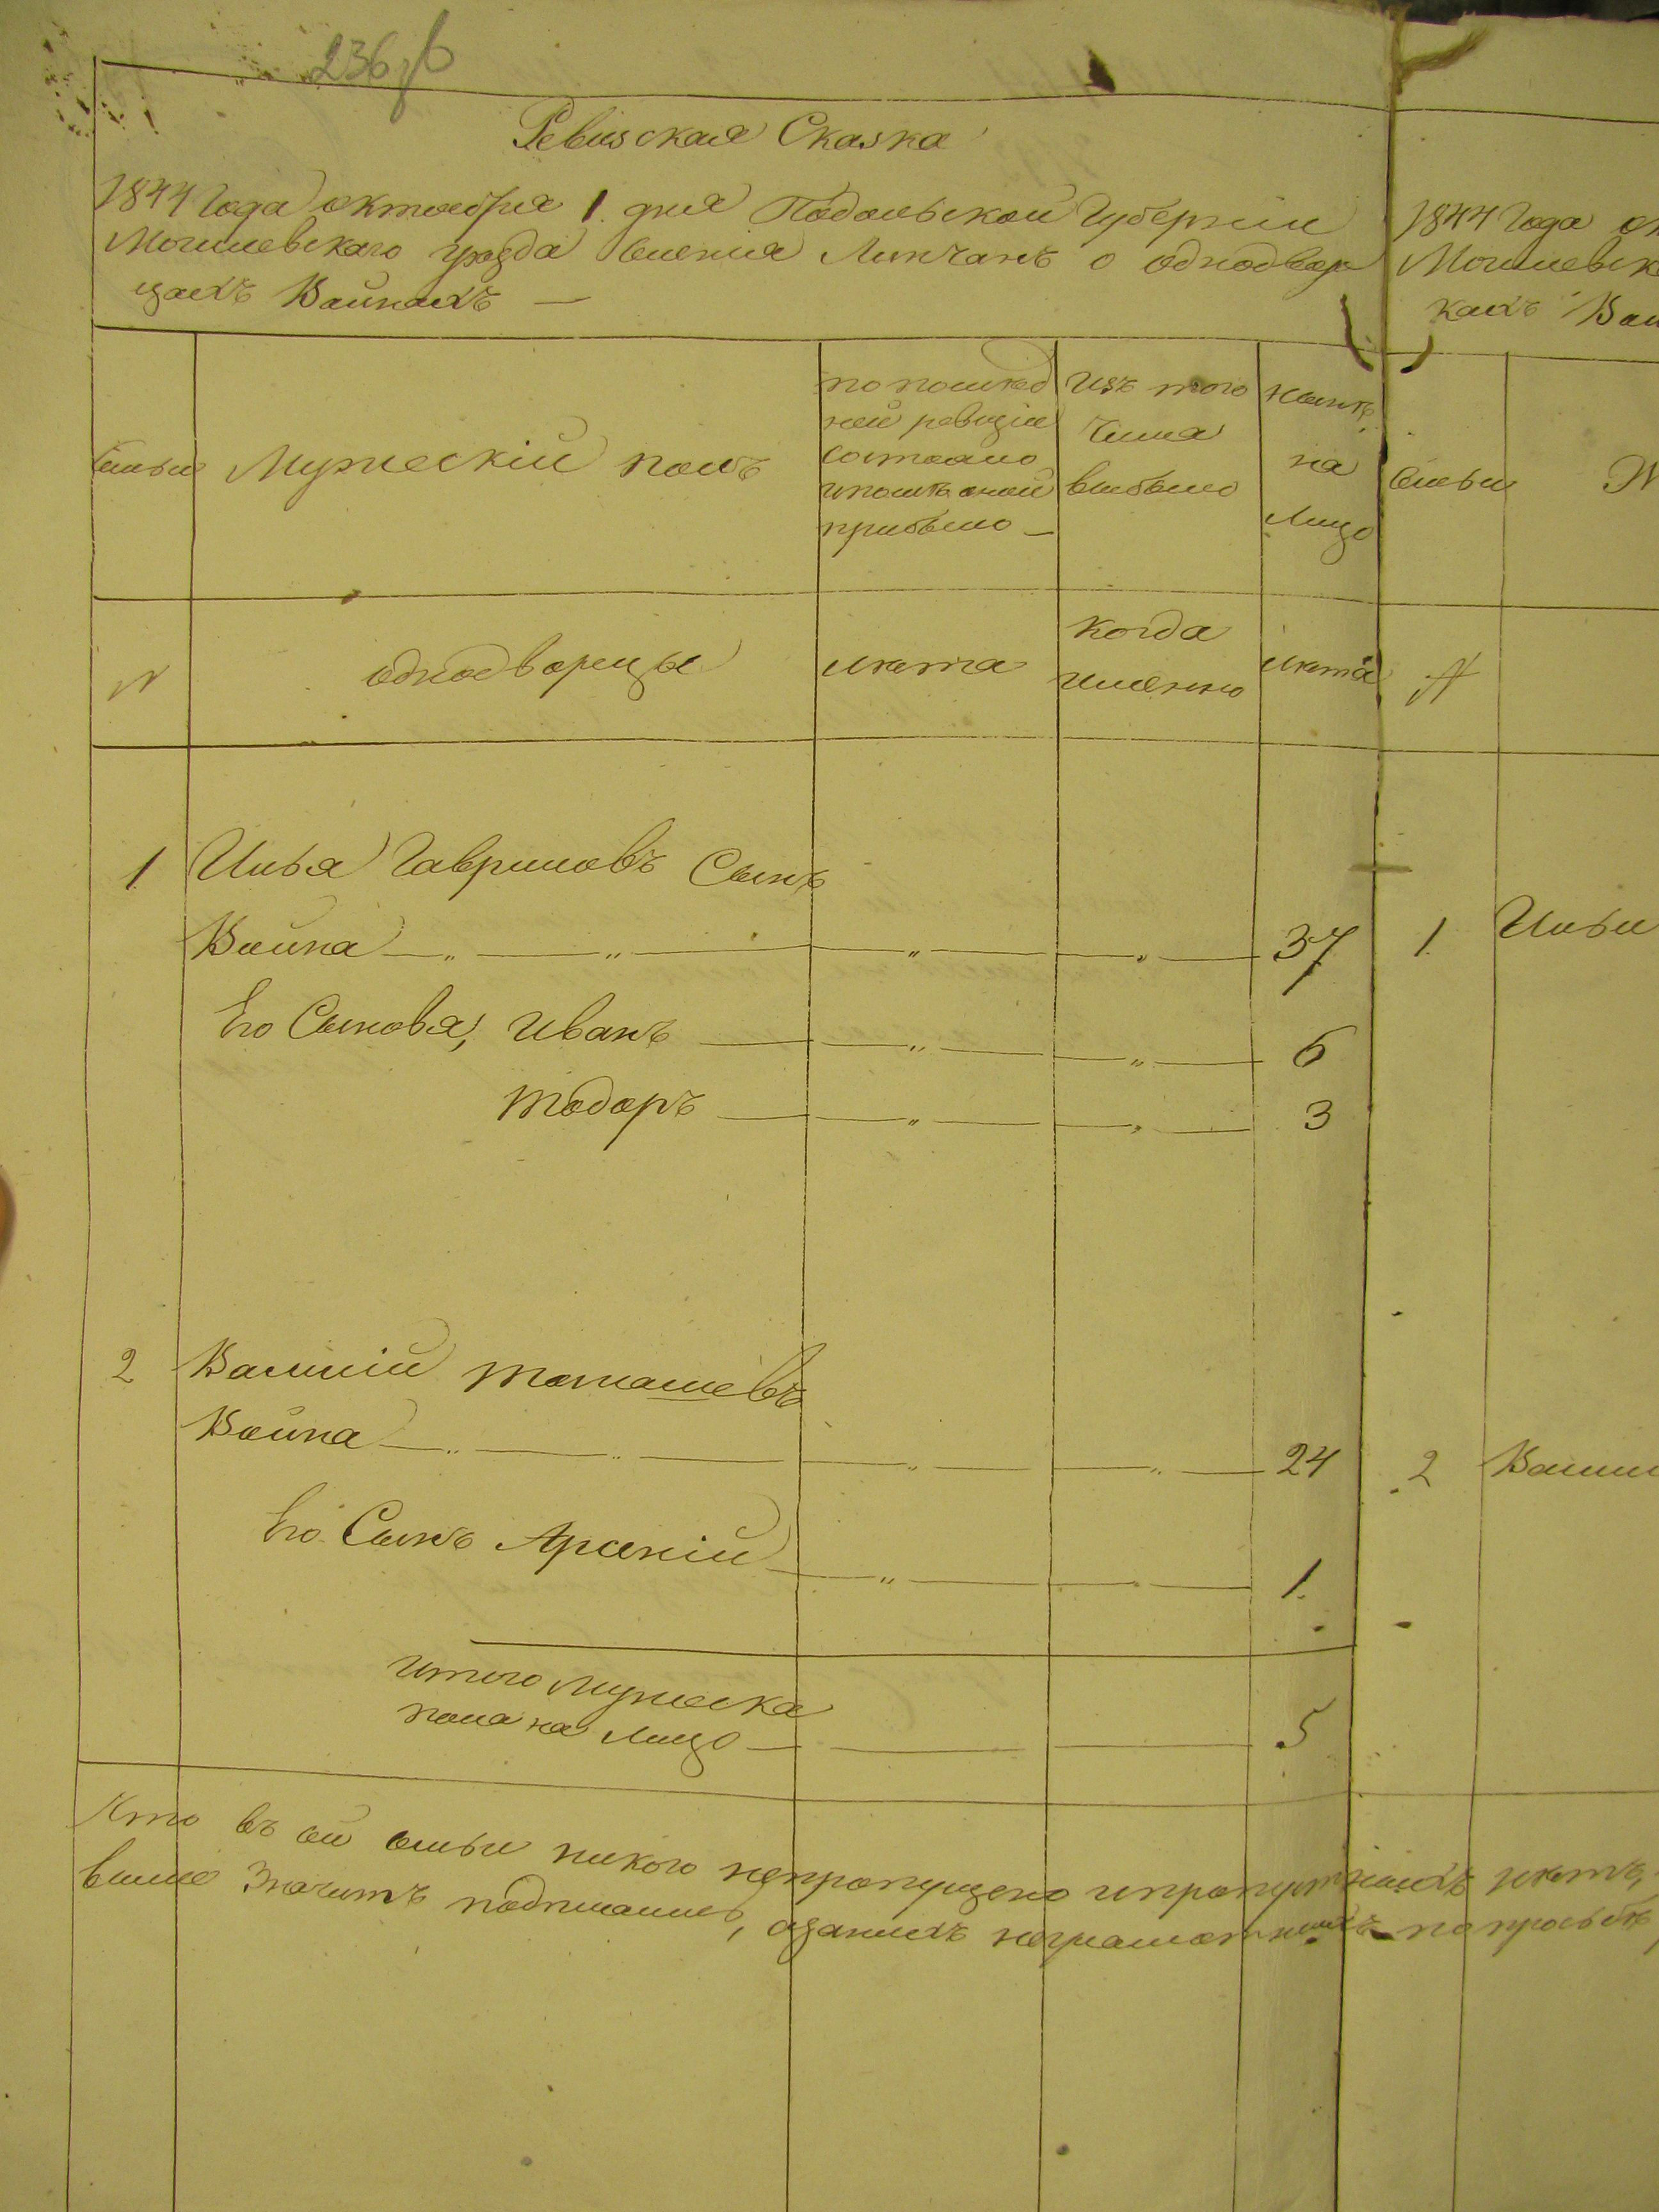 236 об
Ревизская Сказка
1844 Года октоября 1. дня Подольской Губерніи
Могилевскаго уезда Селенія Липчанъ о однодвор
цахъ Войнахъ —
1844 Года ок
Могилевск
кахъ Вой
Семьи
Мужескій полъ
по послѣд
ней ревизіи
состояло
и послѣ оной
прибыло —
Изъ того
Числа
выбыло
Нынѣ
на
Лицо
Семьи
N
однодворецы
лѣта
когда
именно
лѣта
N
1 Илья Гавриловъ Сынъ
Война — „ — „ — „ — „ — 37
1. Ильи
Его Сыновья, Иванъ — „ — „ — 6
Тодоръ — „ — „ — 3
2 Василій Томашевъ
Война — „ — „ — „ — „ — 24
2 Васили
Его Сынъ Арсеній — „ — „ — 1.
Итого Мужеска
пола на Лицо — 5
Что въ сей семьи никого непропущено ипропущенныхъ нетъ,
выше Значитъ подписались, азанихъ неграмотныхъ попросьбѣ